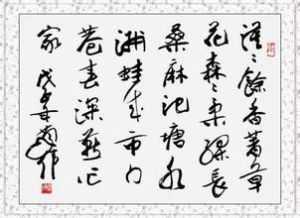 漠〻餘香著草
花森〻柔綠長
桑麻池塘水
滿蛙成市門
巷春深燕作
家